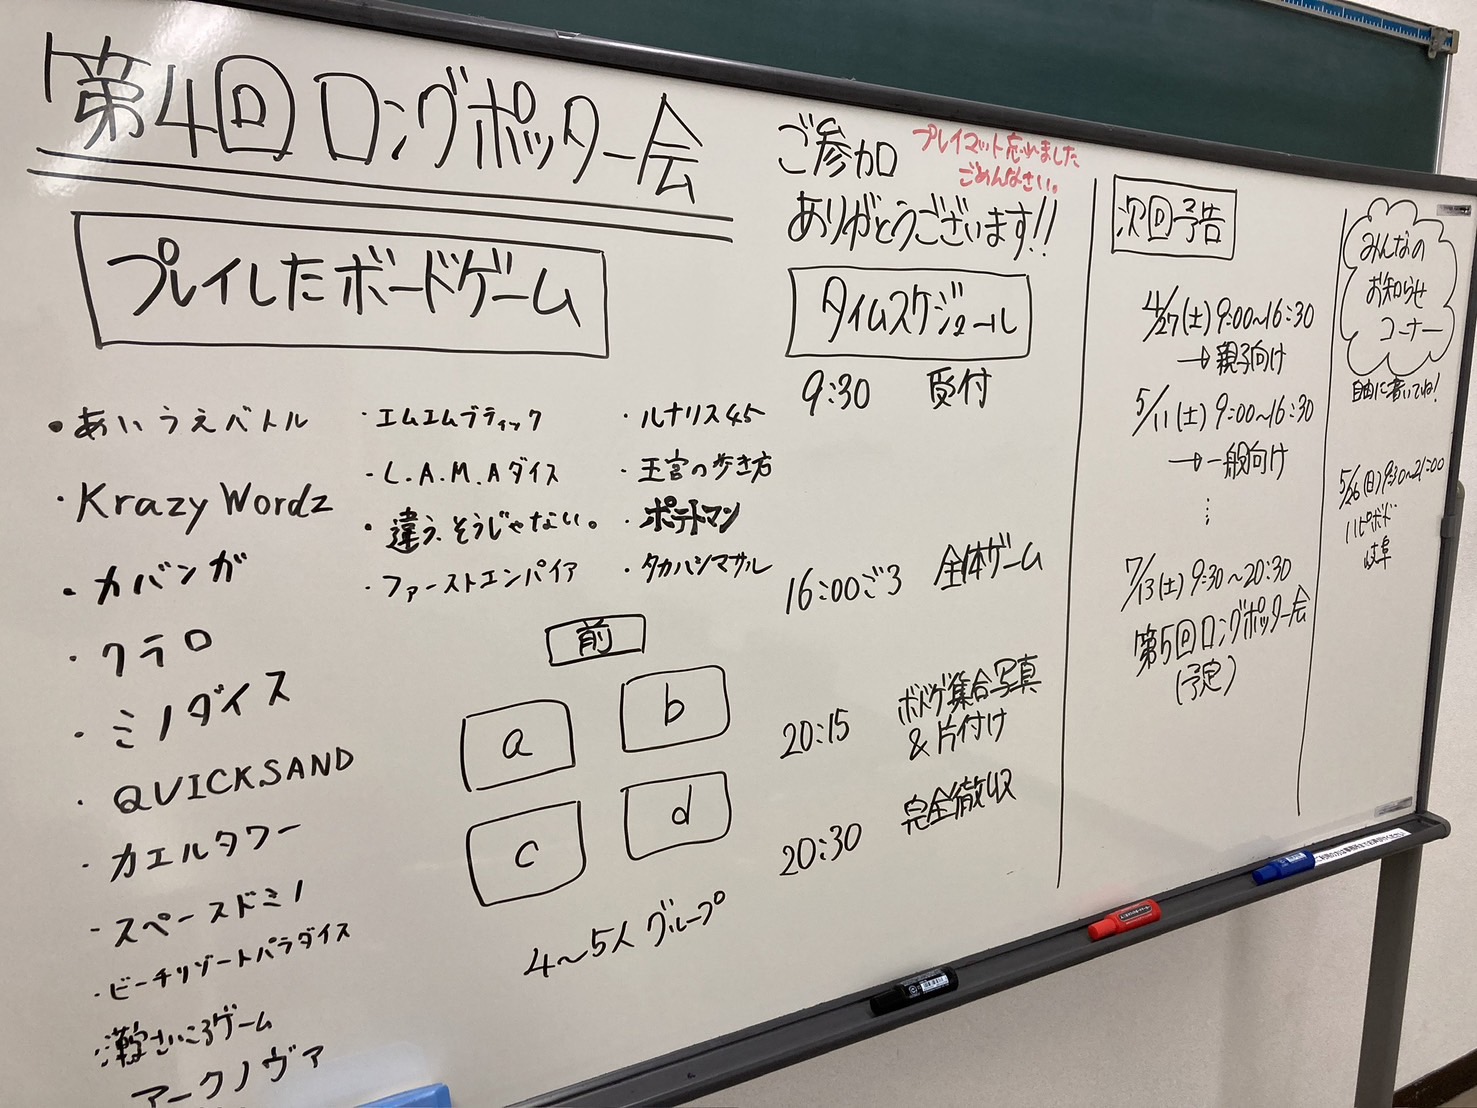 第4回ロングポッター会
プレイしたボードゲーム
・あいうえバトル
・Krazy Wordz
・カバンガ
・クラロ
・ミノダイス
・QUICKSAND
・カエルタワー
・スペースドミノ
・ビーチリゾートパラダイス
・漢字さいころゲーム
アークノヴァ
・エムエムブティック
・L.A.M.Aダイス
・違う、そうじゃない。
・ファーストエンパイア
・ルナリス45
・王宮の歩き方
・ポテトマン
・タカハシマサル
前
a
b
c
d
4～5人グループ
ご参加
ありがとうございます!!
プレイマット忘れました
ごめんなさい。
タイムスケジュール
9:30 受付
16:00ごろ 全体ゲーム
20:15 ボドゲ集合写真
&片付け
20:30 完全撤収
次回予告
4/27(土)9:00～16:30
→親子向け
5/11(土)9:00～16:30
→一般向け
⋮
7/13(土)9:30～20:30
第5回ロングポッター会
(予定)
みんなの
お知らせ
コーナー
自由に書いてね!
5/26(日)9:30～21:00
ハピボド
岐阜